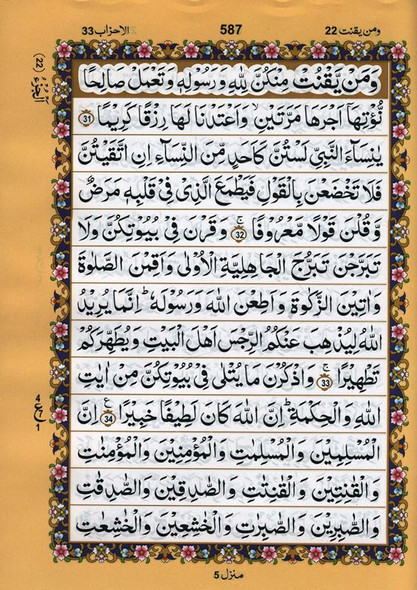 الاحزاب 33 587 ومن يقنت 22
الجزء (22)
وَمَنْ يَّقْنُتْ مِنْكُنَّ لِلّٰهِ وَرَسُوْلِهٖ وَتَعْمَلْ صَالِحًا
نُّؤْتِهَآ اَجْرَهَا مَرَّتَيْنِ ۙ وَاَعْتَدْنَا لَهَا رِزْقًا كَرِيْمًا 31
يٰنِسَآءَ النَّبِيِّ لَسْتُنَّ كَاَحَدٍ مِّنَ النِّسَآءِ اِنِ اتَّقَيْتُنَّ
فَلَا تَخْضَعْنَ بِالْقَوْلِ فَيَطْمَعَ الَّذِيْ فِيْ قَلْبِهٖ مَرَضٌ
وَّقُلْنَ قَوْلًا مَّعْرُوْفًا ۚ 32 وَقَرْنَ فِيْ بُيُوْتِكُنَّ وَلَا
تَبَرَّجْنَ تَبَرُّجَ الْجَاهِلِيَّةِ الْاُوْلٰى وَاَقِمْنَ الصَّلٰوةَ
وَاٰتِيْنَ الزَّكٰوةَ وَاَطِعْنَ اللّٰهَ وَرَسُوْلَهٗ ؕ اِنَّمَا يُرِيْدُ
اللّٰهُ لِيُذْهِبَ عَنْكُمُ الرِّجْسَ اَهْلَ الْبَيْتِ وَيُطَهِّرَكُمْ
تَطْهِيْرًا ۚ 33 وَاذْكُرْنَ مَا يُتْلٰى فِيْ بُيُوْتِكُنَّ مِنْ اٰيٰتِ
اللّٰهِ وَالْحِكْمَةِ ؕ اِنَّ اللّٰهَ كَانَ لَطِيْفًا خَبِيْرًا ع 34 اِنَّ
4 ع 1
الْمُسْلِمِيْنَ وَالْمُسْلِمٰتِ وَالْمُؤْمِنِيْنَ وَالْمُؤْمِنٰتِ
وَالْقٰنِتِيْنَ وَالْقٰنِتٰتِ وَالصّٰدِقِيْنَ وَالصّٰدِقٰتِ
وَالصّٰبِرِيْنَ وَالصّٰبِرٰتِ وَالْخٰشِعِيْنَ وَالْخٰشِعٰتِ
منزل 5